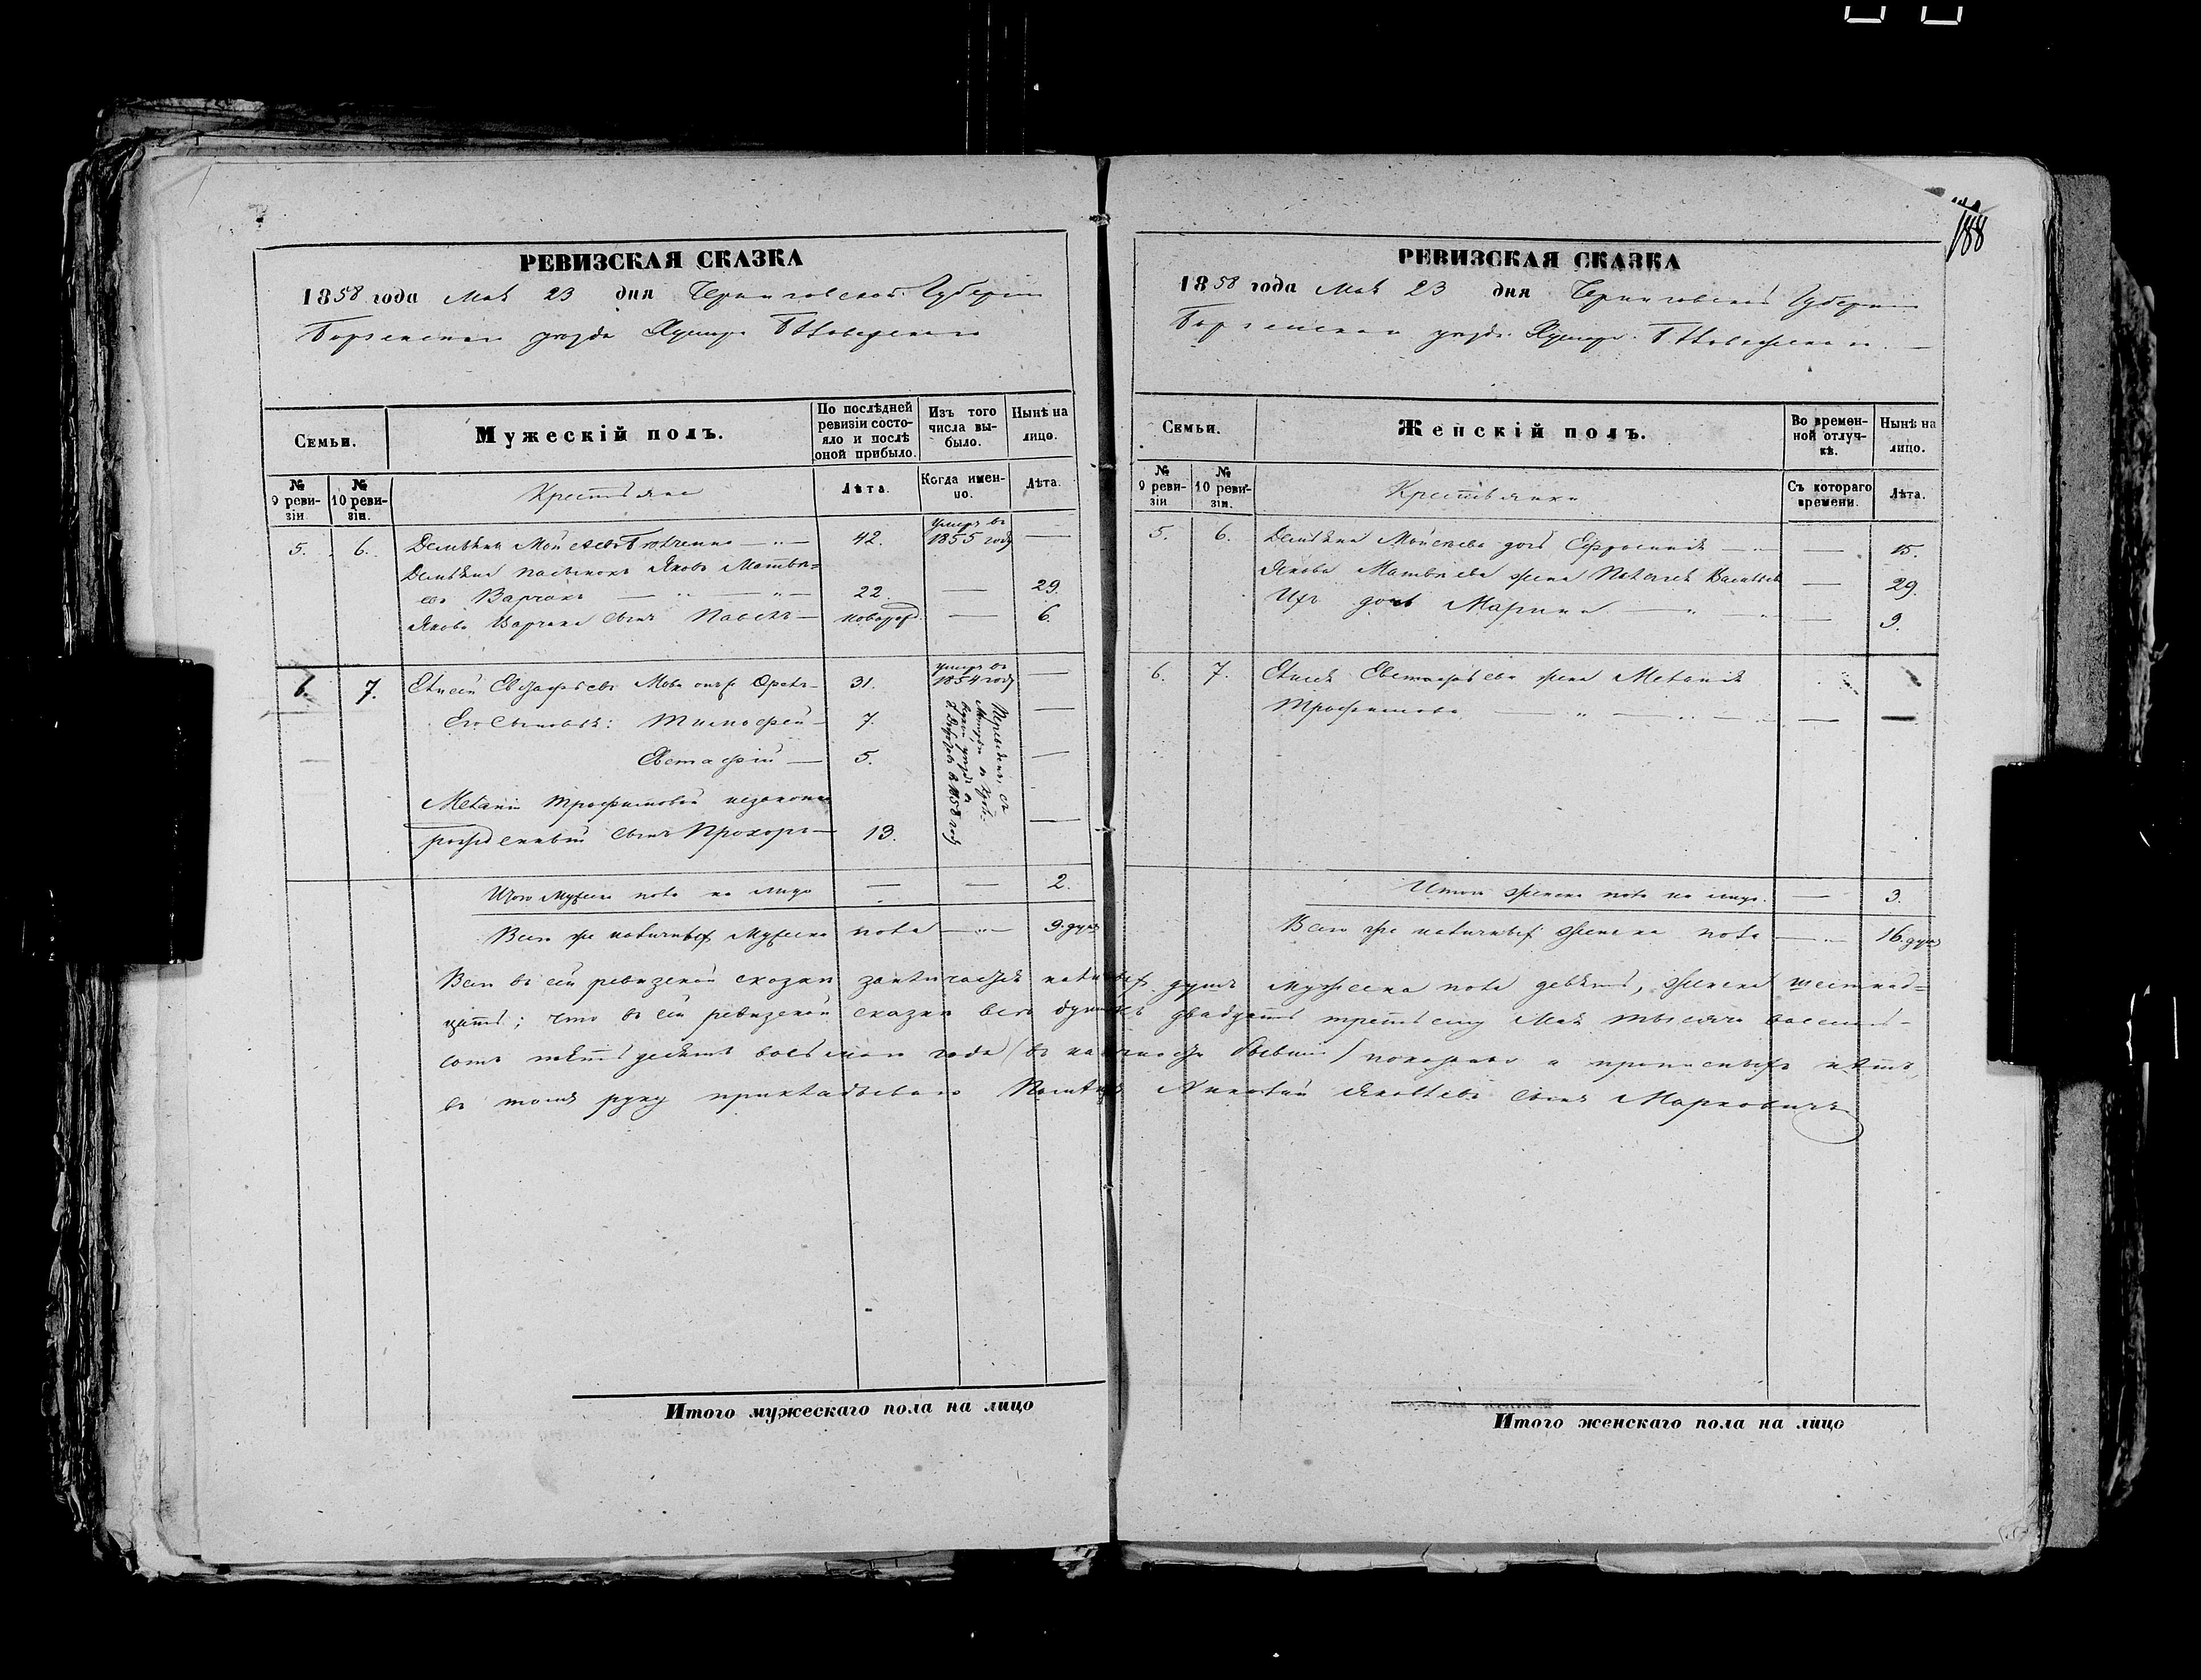 188
РЕВИЗСКАЯ СКАЗКА
1858 года Мая 23 дня Черниговской Губерніи
Борзенскаго уезда Хутора
Семьи.
Мужескій полъ.
По послѣдней ревизіи состояло и послѣ оной прибыло.
Изъ того числа выбыло.
Нынѣ на лицо.
№ 9 ревизіи
№ 10 ревизіи.
Крестьяне
Лѣта.
Когда именно.
Лѣта.
5. 6. Демьянъ Мойсеевъ 42. умеръ въ 1855 году —
Демьяна пасынокъ Яковъ Матвѣ=
евъ Варчакъ — 22. — 29.
Якова Варчака сынъ Павелъ — новорожд. — 6.
6. 7. Елисей Евстафіевъ 31. умеръ въ 1854 году —
Его Сыновья: Тимофей — 7. —
Евстафій — 5. —
Меланіи Трофимовой незаконно
рожденный сынъ Прохоръ — 13. —
въ 1858 году
Итого мужеска пола на лицо — — 2.
Всего же наличныхъ мужеска пола — 9. душъ
РЕВИЗСКАЯ СКАЗКА
1858 года Мая 23 дня Черниговской Губерніи
Борзенскаго уезда Хутора
Семьи.
Женскій полъ.
Во временной отлучкѣ.
Нынѣ на лицо.
№ 9 ревизіи
№ 10 ревизіи.
Крестьянки
Съ котораго времени.
Лѣта.
5. 6. Демьяна Мойсеева дочь Ефросинія — — 15.
Якова Матвѣева жена Пелагея — 29.
Ихъ дочь Марина — — 9.
6. 7. Елисея Евстафіева жена Меланія
Трофимова — — —
Итого женска пола на лицо. — 3.
Всего же наличныхъ женска пола — 16. душъ
Всего въ сей ревизской сказки заключается наличныхъ душъ мужеска пола девять, женска шестнад=
цать; что въ сей ревизской сказки всѣ души къ двадцать третьему Мая тысяча восемь-
сотъ пятьдесятъ восьмаго года (въ наличности бывшія) показаны и прописныхъ нѣтъ,
въ томъ руку прикладываю Яковлевъ сынъ Марковичъ
Итого мужескаго пола на лицо
Итого женскаго пола на лицо